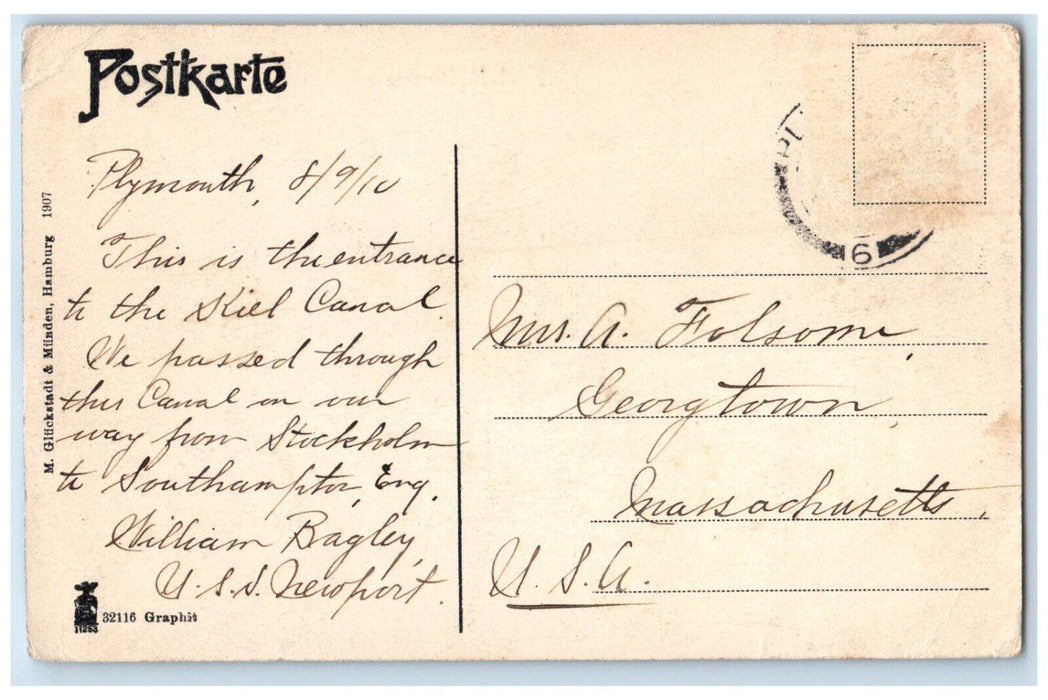 Postkarte
Plymouth, 8/9/10
This is the entrance
to the Kiel Canal.
We passed through
this Canal on our
way from Stockholm
to Southampton, Eng.
William Bagley,
U.S.S. Newport.
M. Glückstadt & Münden, Hamburg 1907
32116 Graphit
PL
9
Mrs. A. Folsom,
Georgtown,
Massachusetts,
U.S.A.